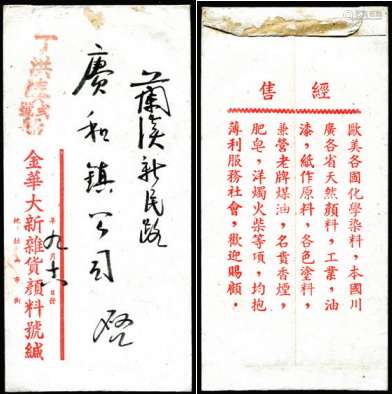 蘭溪新民路
廣和鎮公司 啓
年 月 日
九 十六
金華大新雜貨顏料號緘
經售
歐美各國化學染料，本國川
廣各省天然顏料，工業，油
漆，紙作原料，各色塗料，
兼營老牌煤油，名貴香煙，
肥皂，洋燭火柴等項，均抱
薄利服務社會，歡迎賜顧，